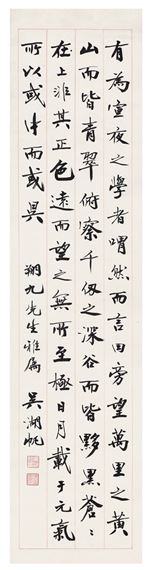 有為宣夜之學者喟然而言曰旁望萬里之黃
山而皆青翠俯察千仞之深谷而皆黟黑蒼〻
在上非其正色遠而望之無所至極日月載于元氣
所以或中而或異
翔九先生雅屬
吳湖帆